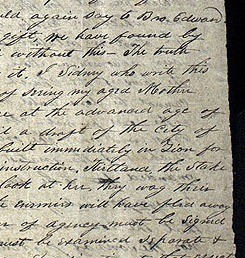 again say to Bro. Edward
gift, we have found by
without this - The truth
it. I Sidney who write this
of seeing my aged Mother
at the advanced age of
a draft of the City of
built immediately in Zion for
instruction, Kirtland, the Stake
look at her, they wag their
enemies will have fled away
of agency must be signed
must be examined separate &